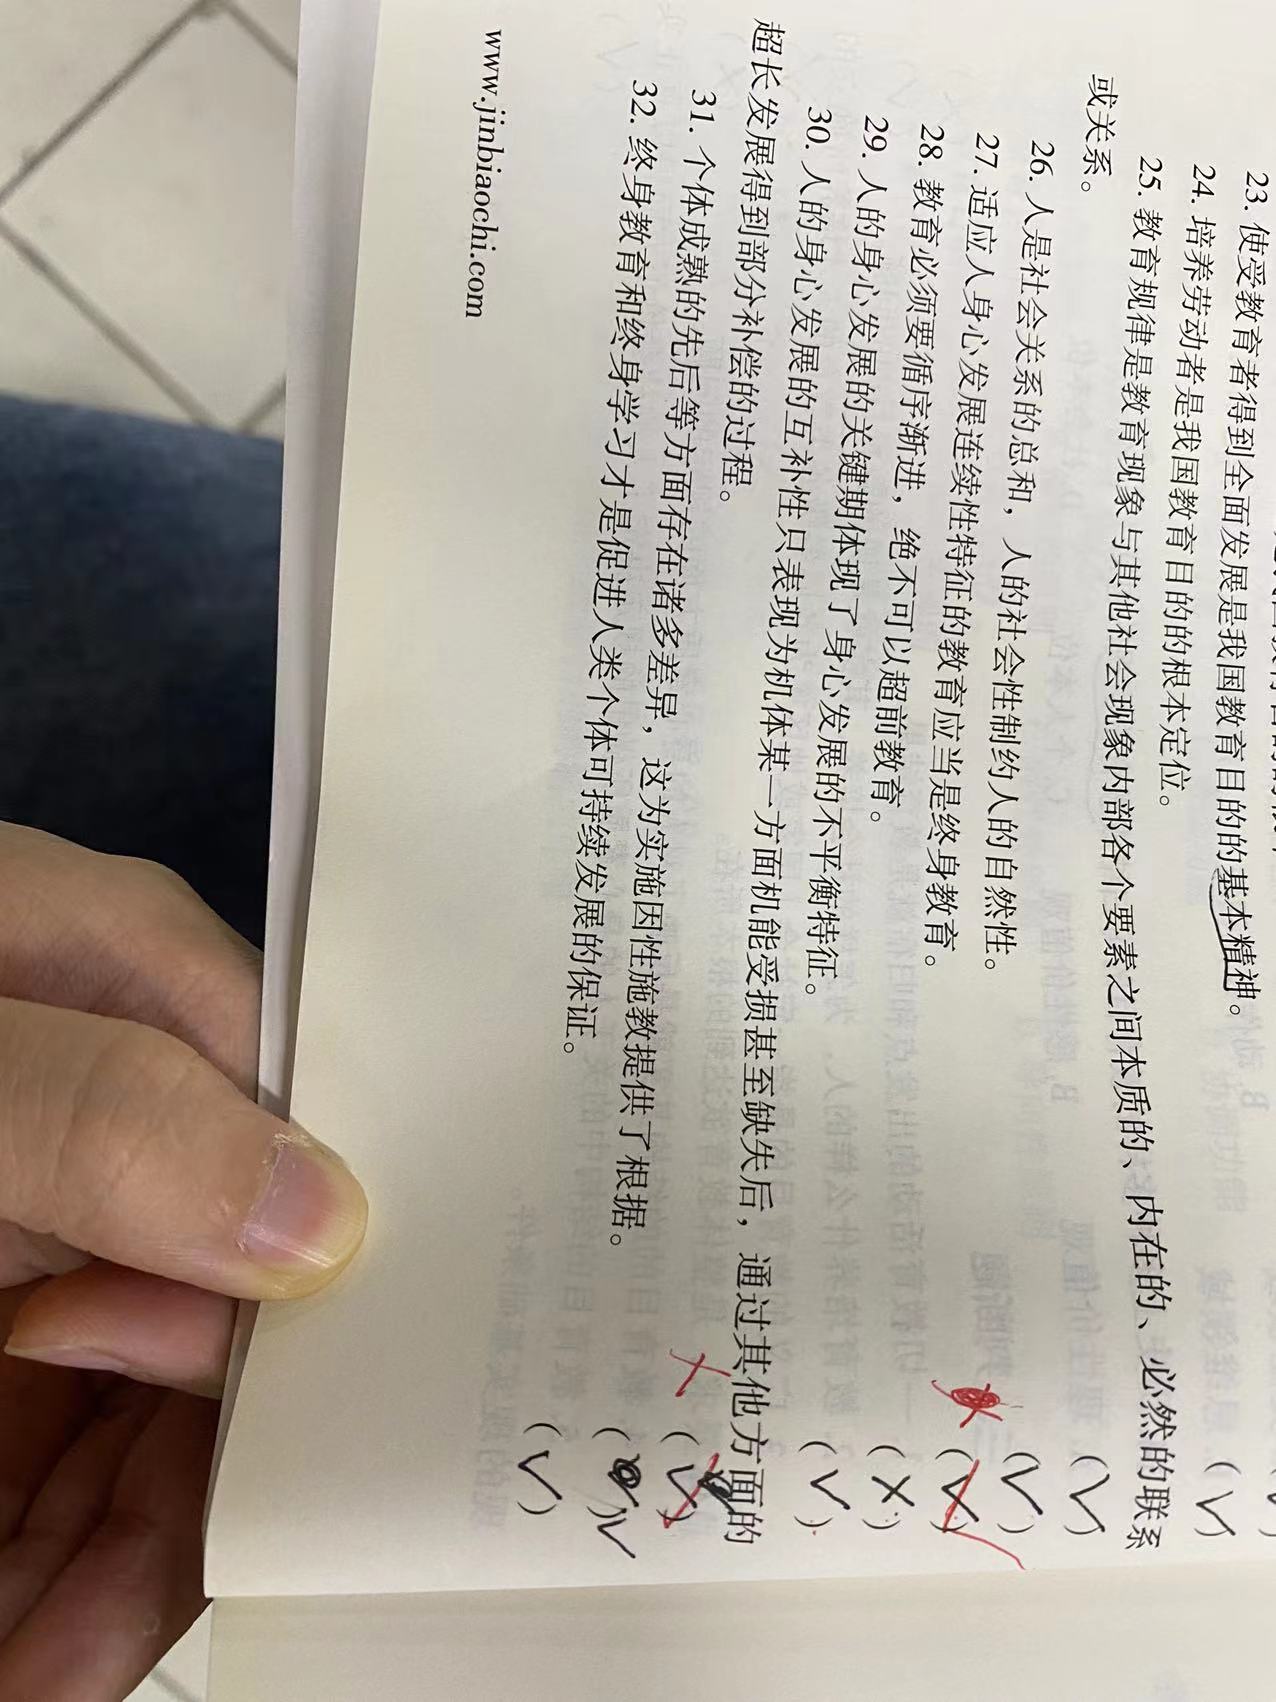 23. 使受教育者得到全面发展是我国教育目的的基本精神。
24. 培养劳动者是我国教育目的的根本定位。 (√)
25. 教育规律是教育现象与其他社会现象内部各个要素之间本质的、内在的、必然的联系
或关系。 (√)
26. 人是社会关系的总和，人的社会性制约人的自然性。 (√)
27. 适应人身心发展连续性特征的教育应当是终身教育。 (√)
28. 教育必须要循序渐进，绝不可以超前教育。 (×)
29. 人的身心发展的关键期体现了身心发展的不平衡特征。 (√)
30. 人的身心发展的互补性只表现为机体某一方面机能受损甚至缺失后，通过其他方面的
超长发展得到部分补偿的过程。 (√)
31. 个体成熟的先后等方面存在诸多差异，这为实施因性施教提供了根据。 ( )√
32. 终身教育和终身学习才是促进人类个体可持续发展的保证。 (√)
www.jinbiaochi.com